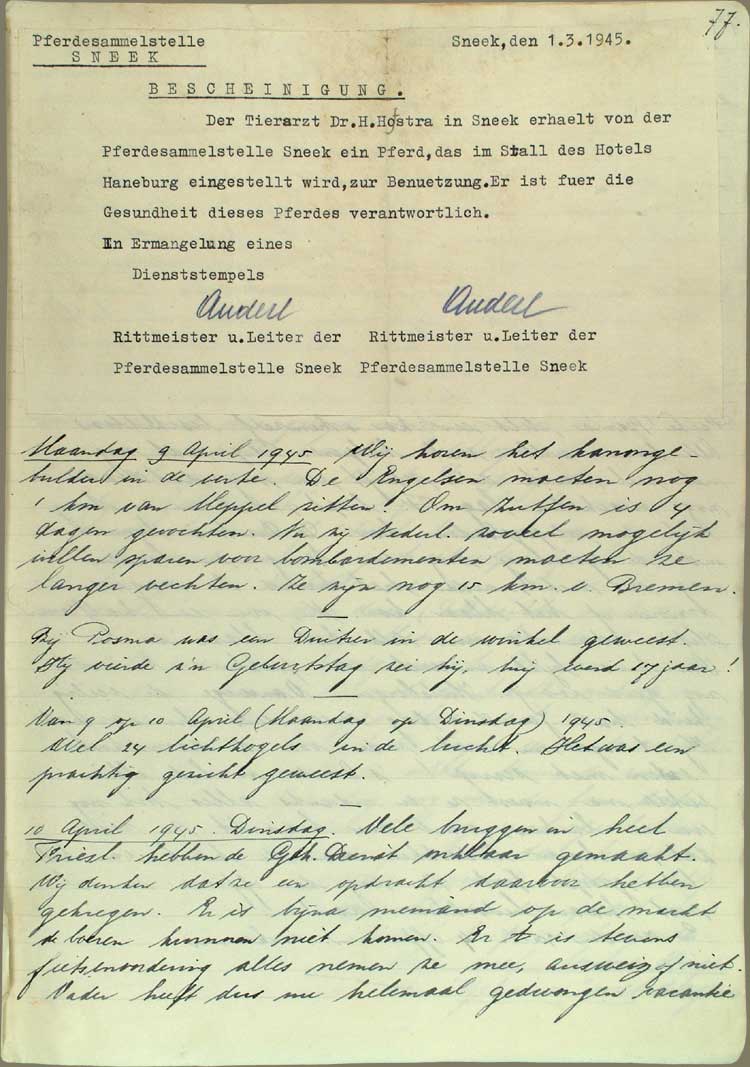 77.
Pferdesammelstelle
SNEEK
Sneek,den 1.3.1945.
BESCHEINIGUNG.
Der Tierarzt Dr.H.Hofstra in Sneek erhaelt von der
Pferdesammelstelle Sneek ein Pferd,das im Stall des Hotels
Haneburg eingestellt wird,zur Benuetzung.Er ist fuer die
Gesundheit dieses Pferdes verantwortlich.
In Ermangelung eines
Dienststempels
Anderl Anderl
Rittmeister u.Leiter der Rittmeister u.Leiter der
Pferdesammelstelle Sneek Pferdesammelstelle Sneek
Maandag 9 April 1945 Wij horen het kanonge-
bulder in de verte. De Engelsen moeten nog
1 km van Meppel zitten. Om Zutfen is 4
dagen gevochten. Nu zij Nederl. zoveel mogelijk
willen sparen voor bombardementen moeten ze
langer vechten. Ze zijn nog 15 km. v. Bremen.
Bij Posma was een Duitser in de winkel geweest.
Hij vierde z'n Geburtstag zei hij, hij werd 17 jaar!
Van 9 op 10 April (Maandag op Dinsdag) 1945
Wel 24 lichtkogels in de lucht. Het was een
prachtig gezicht geweest.
10 April 1945. Dinsdag. Vele bruggen in heel
Friesl. hebben de Geh. Dienst onklaar gemaakt.
Wij denken dat ze een opdracht daarvoor hebben
gekregen. Er is bijna niemand op de markt
de boeren kunnen niet komen. Er is tevens
fietsenvordering alles nemen ze mee, ausweis of niet.
Vader heeft dus nu helemaal gedwongen vacantie